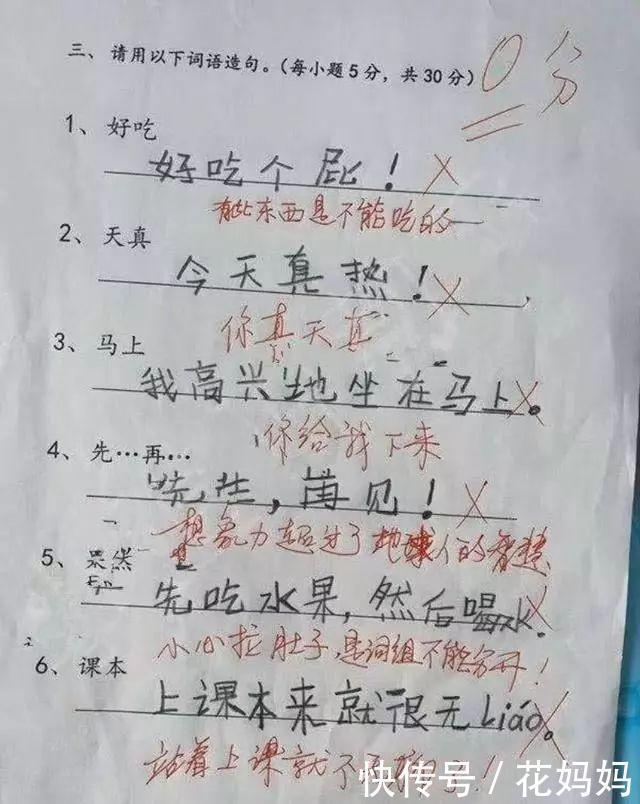 三、请用以下词语造句。(每小题5分，共30分)
0分
1、好吃
好吃个屁！
有些东西是不能吃的
2、天真
今天真热！
你真天真
3、马上
我高兴地坐在马上。
你给我下来
4、先…再…
先生，再见！
想象力超过了地球人的智慧
5、果然
先吃水果，然后喝水。
小心拉肚子，是词组不能分开！
6、课本
上课本来就很无Liáo。
站着上课就不无聊了！
快传号/花妈妈